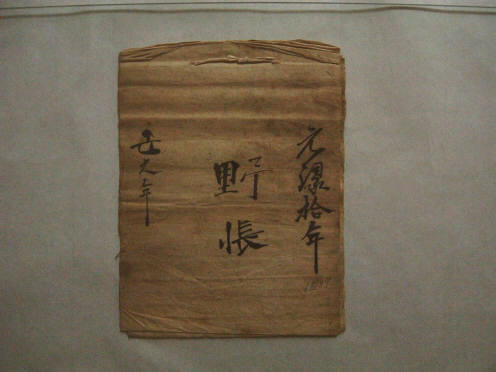 元禄拾年
1697
野帳
丑 年